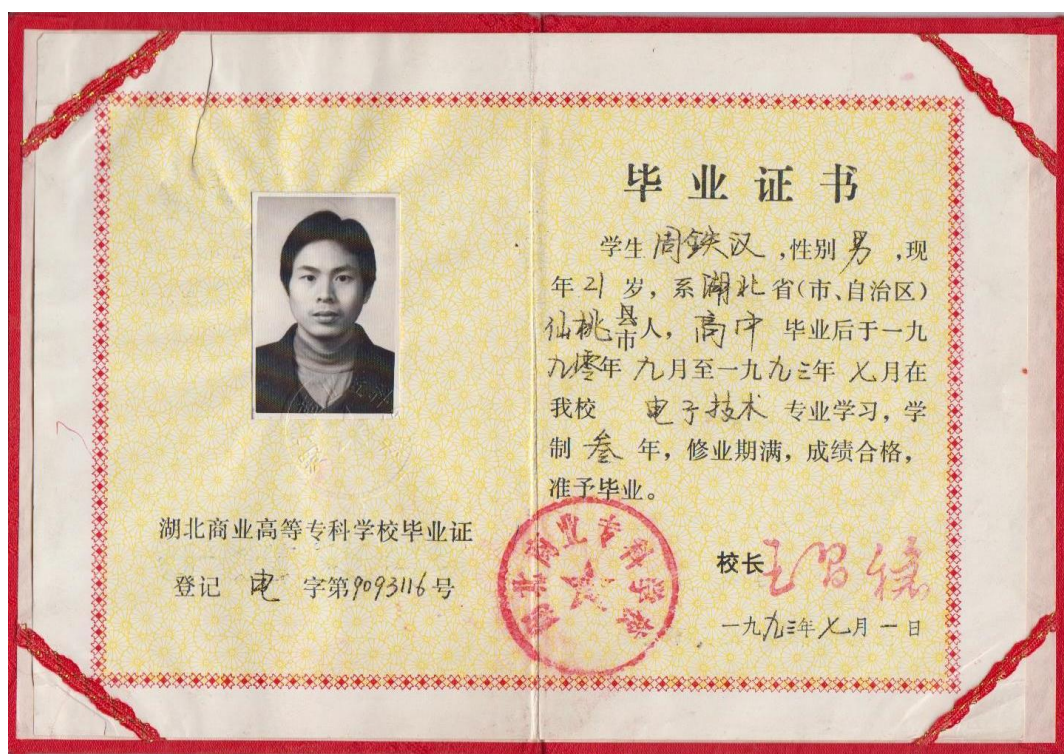 湖北商业高等专科学校毕业证
登记 电 字第9093116号
毕业证书
学生周铁汉,性别男,现
年21岁,系湖北省(市、自治区)
仙桃县市人,高中毕业后于一九
九零年九月至一九九三年七月在
我校电子技术专业学习,学
制叁年,修业期满,成绩合格,
准予毕业。
湖北商业专科学校
校长
一九九三年七月一日